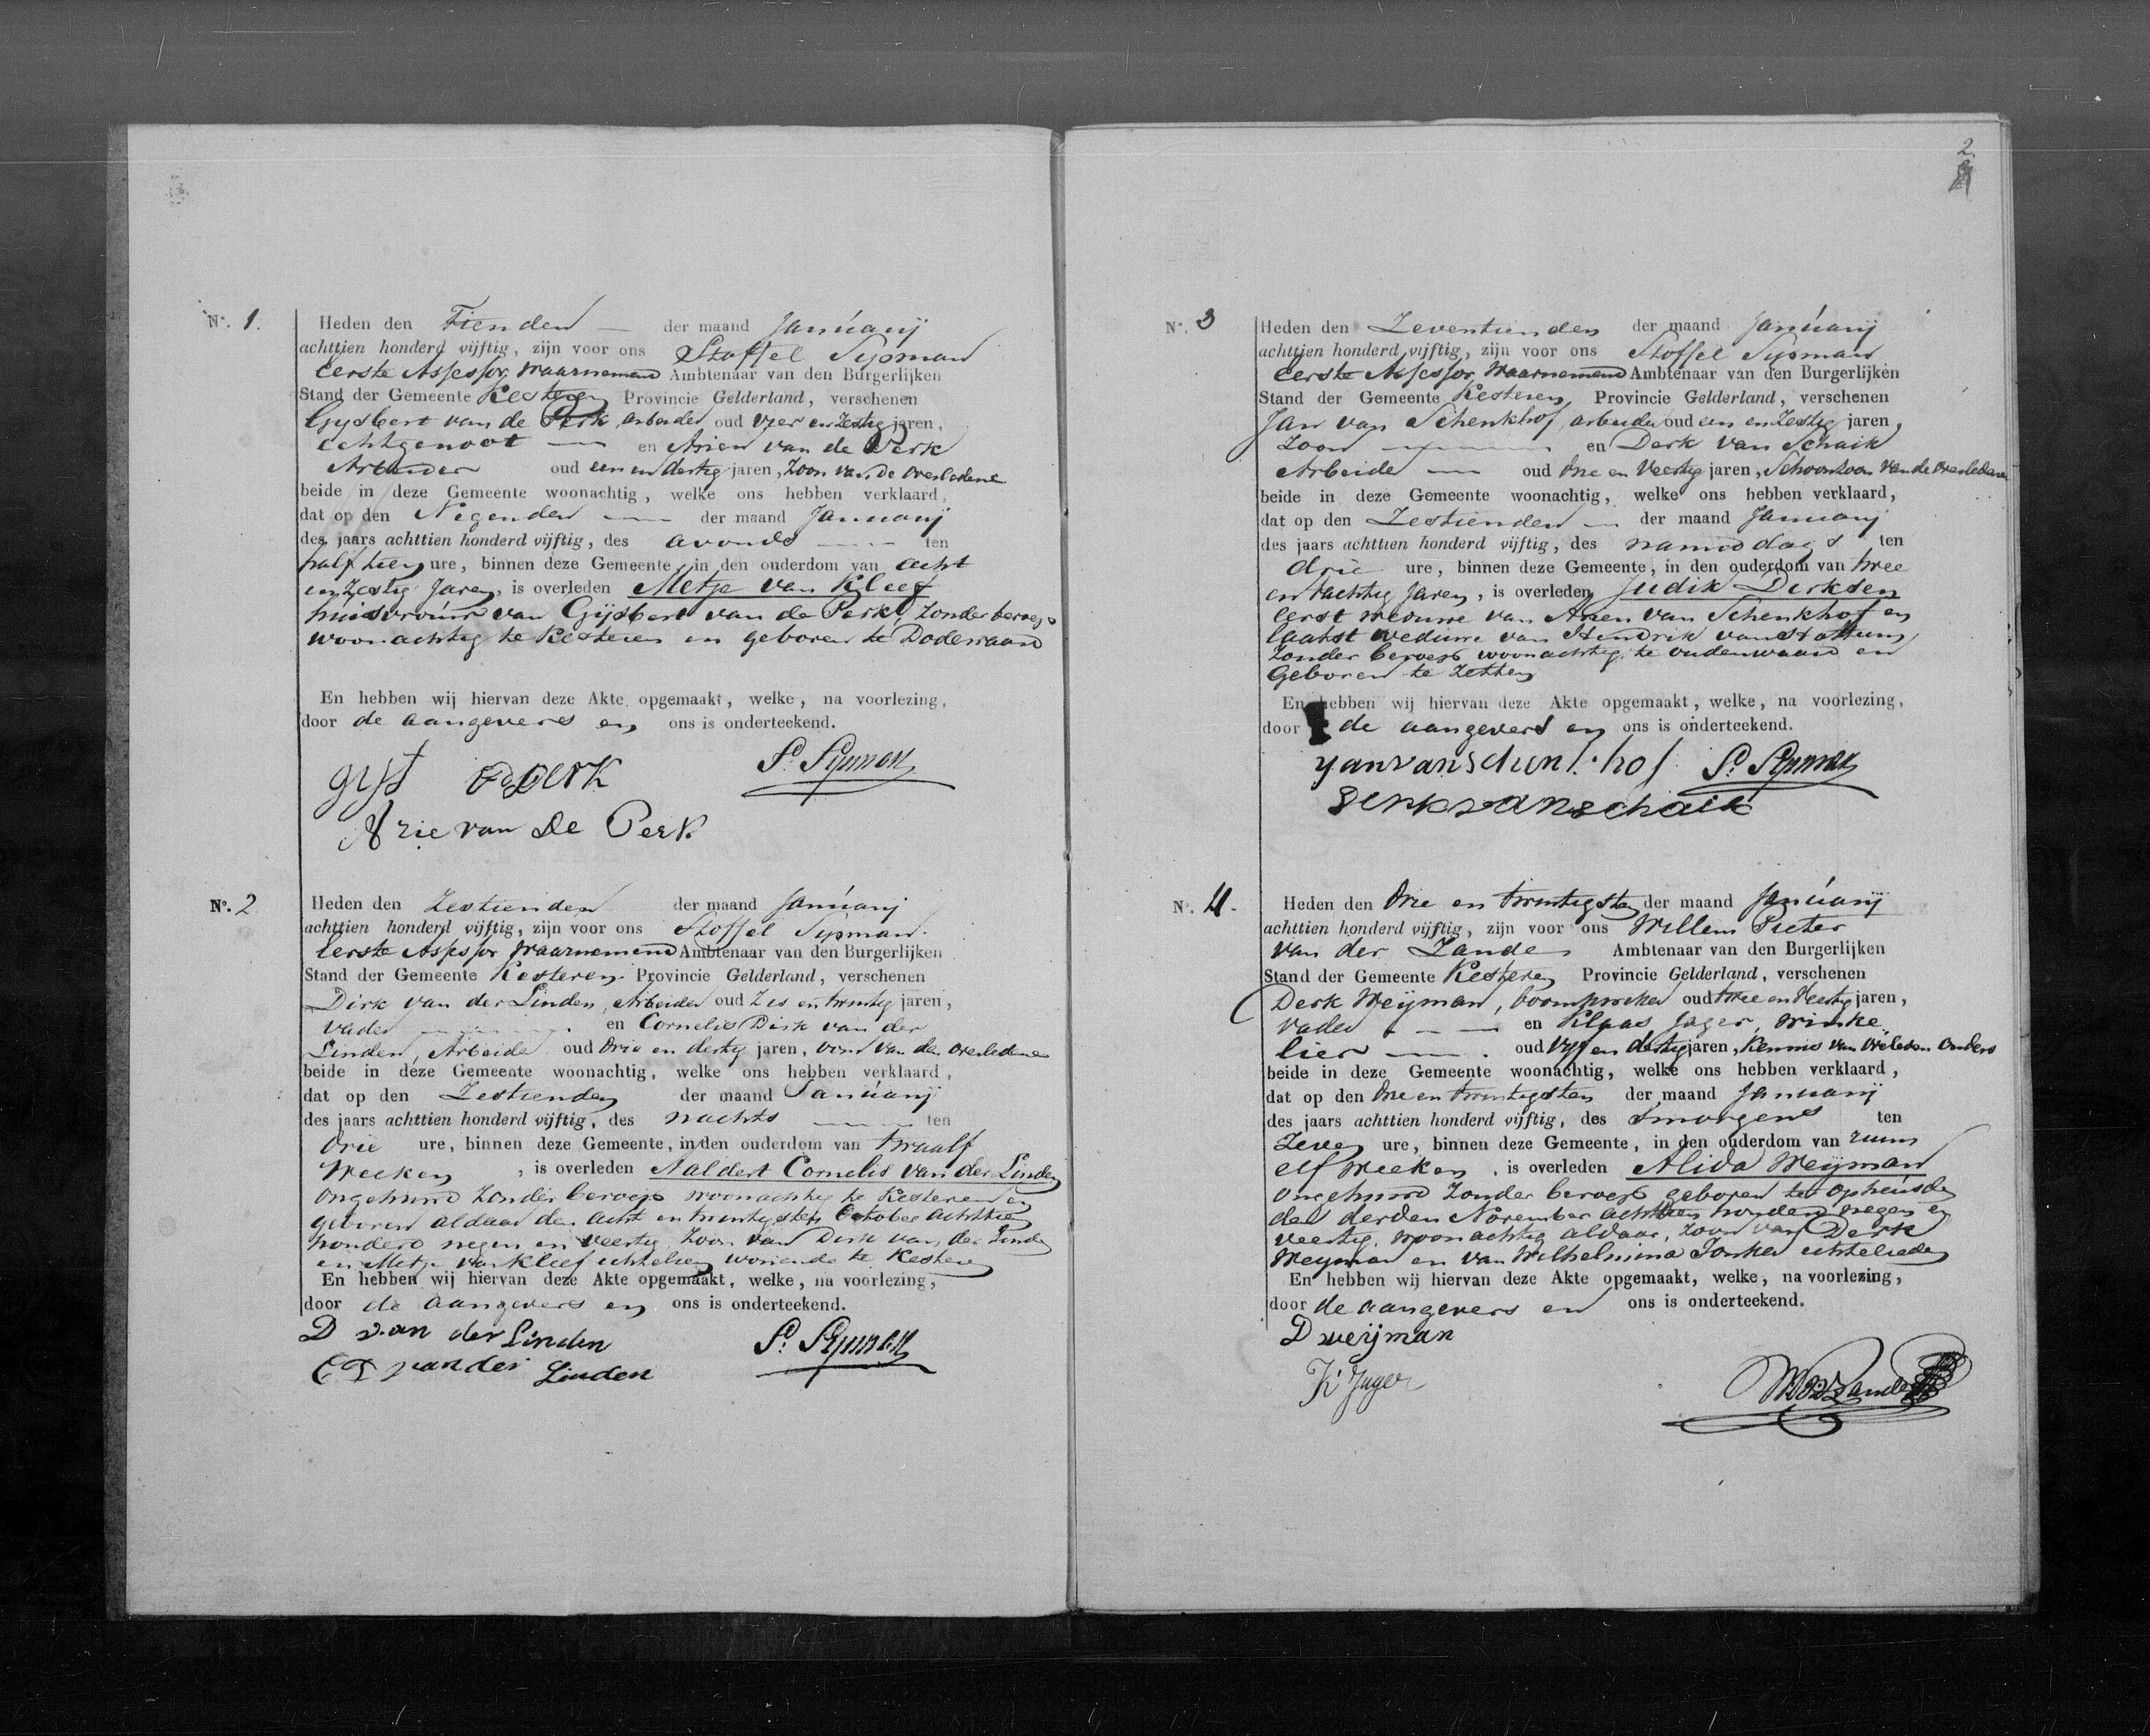 Nº. 1.
Heden den Tienden der maand Januarij
achttien honderd vijftig, zijn voor ons Stoffel Sijpman
Eerste Assessor waarnemend Ambtenaar van den Burgerlijken
Stand der Gemeente Kesteren Provincie Gelderland, verschenen
Gijsbert van de Perk, arbeider oud vier en zestig jaren,
echtgenoot en Arien van de Perk
Arbeider oud een en dertig jaren, Zoon van de Overledene
beide in deze Gemeente woonachtig, welke ons hebben verklaard,
dat op den Negenden der maand Januarij
des jaars achttien honderd vijftig, des avonds ten
half tien ure, binnen deze Gemeente, in den ouderdom van acht
en zestig Jaren, is overleden Metje van Kleef
huisvrouw van Gijsbert van de Perk, Zonder beroep
woonachtig te Kesteren en geboren te Dodewaard
En hebben wij hiervan deze Akte opgemaakt, welke, na voorlezing,
door de aangevers en ons is onderteekend.
S. Sijpman
Arie van De Perk
Nº. 2
Heden den Zestienden der maand Januarij
achttien honderd vijftig, zijn voor ons Stoffel Sijpman
Eerste Assessor waarnemend Ambtenaar van den Burgerlijken
Stand der Gemeente Kesteren Provincie Gelderland, verschenen
Dirk van der Linden, Arbeider oud Zes en twintig jaren,
vader en Cornelis Dirk van der
Linden, Arbeider oud drie en dertig jaren, oom van den Overledene
beide in deze Gemeente woonachtig, welke ons hebben verklaard,
dat op den Zestienden der maand Januarij
des jaars achttien honderd vijftig, des nachts ten
drie ure, binnen deze Gemeente, in den ouderdom van twaalf
Weeken, is overleden Aaldert Cornelis van der Linden
Ongehuwd Zonder beroep woonachtig te Kesteren en
geboren aldaar den acht en twintigsten October achttien
honderd negen en veertig Zoon van Dirk van der Linden
en Metje van Kleef echtelieden wonende te Kesteren
En hebben wij hiervan deze Akte opgemaakt, welke, na voorlezing,
door de aangevers en ons is onderteekend.
D van der Linden S. Sijpman
C D van der Linden
2.
Nº. 3
Heden den Zeventienden der maand Januarij
achttien honderd vijftig, zijn voor ons Stoffel Sijpman
Eerste Assessor waarnemend Ambtenaar van den Burgerlijken
Stand der Gemeente Kesteren Provincie Gelderland, verschenen
Jan van Schenkhof, arbeider oud een en Zestig jaren,
Zoon en Derk van Schaik
Arbeider oud drie en Veertig jaren, Schoonzoon van de Overledene
beide in deze Gemeente woonachtig, welke ons hebben verklaard,
dat op den Zestienden der maand Januarij
des jaars achttien honderd vijftig, des namiddags ten
drie ure, binnen deze Gemeente, in den ouderdom van twee
en tachtig Jaren, is overleden Judik Derksen
eerst weduwe van Arien van Schenkhof en
laatst weduwe van Hendrik van Hattum
Zonder beroep woonachtig te oudenwaard en
Geboren te Zetten
En hebben wij hiervan deze Akte opgemaakt, welke, na voorlezing,
door de aangevers en ons is onderteekend.
S. Sijpman
Derk van Schaik
Nº. 4.
Heden den drie en twintigsten der maand Januarij
achttien honderd vijftig, zijn voor ons Willem Pieter
van der Zande Ambtenaar van den Burgerlijken
Stand der Gemeente Kesteren Provincie Gelderland, verschenen
Derk Weijman, boomkweker oud twee en Veertig jaren,
vader en Klaas Jager, winke
lier oud vijf en dertig jaren, Kennis van Overleden Ouders
beide in deze Gemeente woonachtig, welke ons hebben verklaard,
dat op den drie en twintigsten der maand Januarij
des jaars achttien honderd vijftig, des smorgens ten
Zeven ure, binnen deze Gemeente, in den ouderdom van ruim
elf Weeken, is overleden Alida Weijman
Ongehuwd Zonder beroep geboren te Opheusden
den derden November achttien honderd negen en
veertig, woonachtig aldaar, Zoon van Derk
Weyman en van Wilhelmina Jonker echtelieden
En hebben wij hiervan deze Akte opgemaakt, welke, na voorlezing,
door de aangevers en ons is onderteekend.
D weijman
K Jager